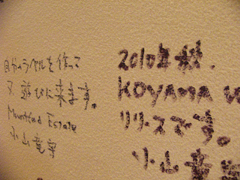 自分のラベルを作って
又遊びに来ます。
Mountford Estate
小山竜宇
2010年秋.
KOYAMA W
リリースです。
小山竜